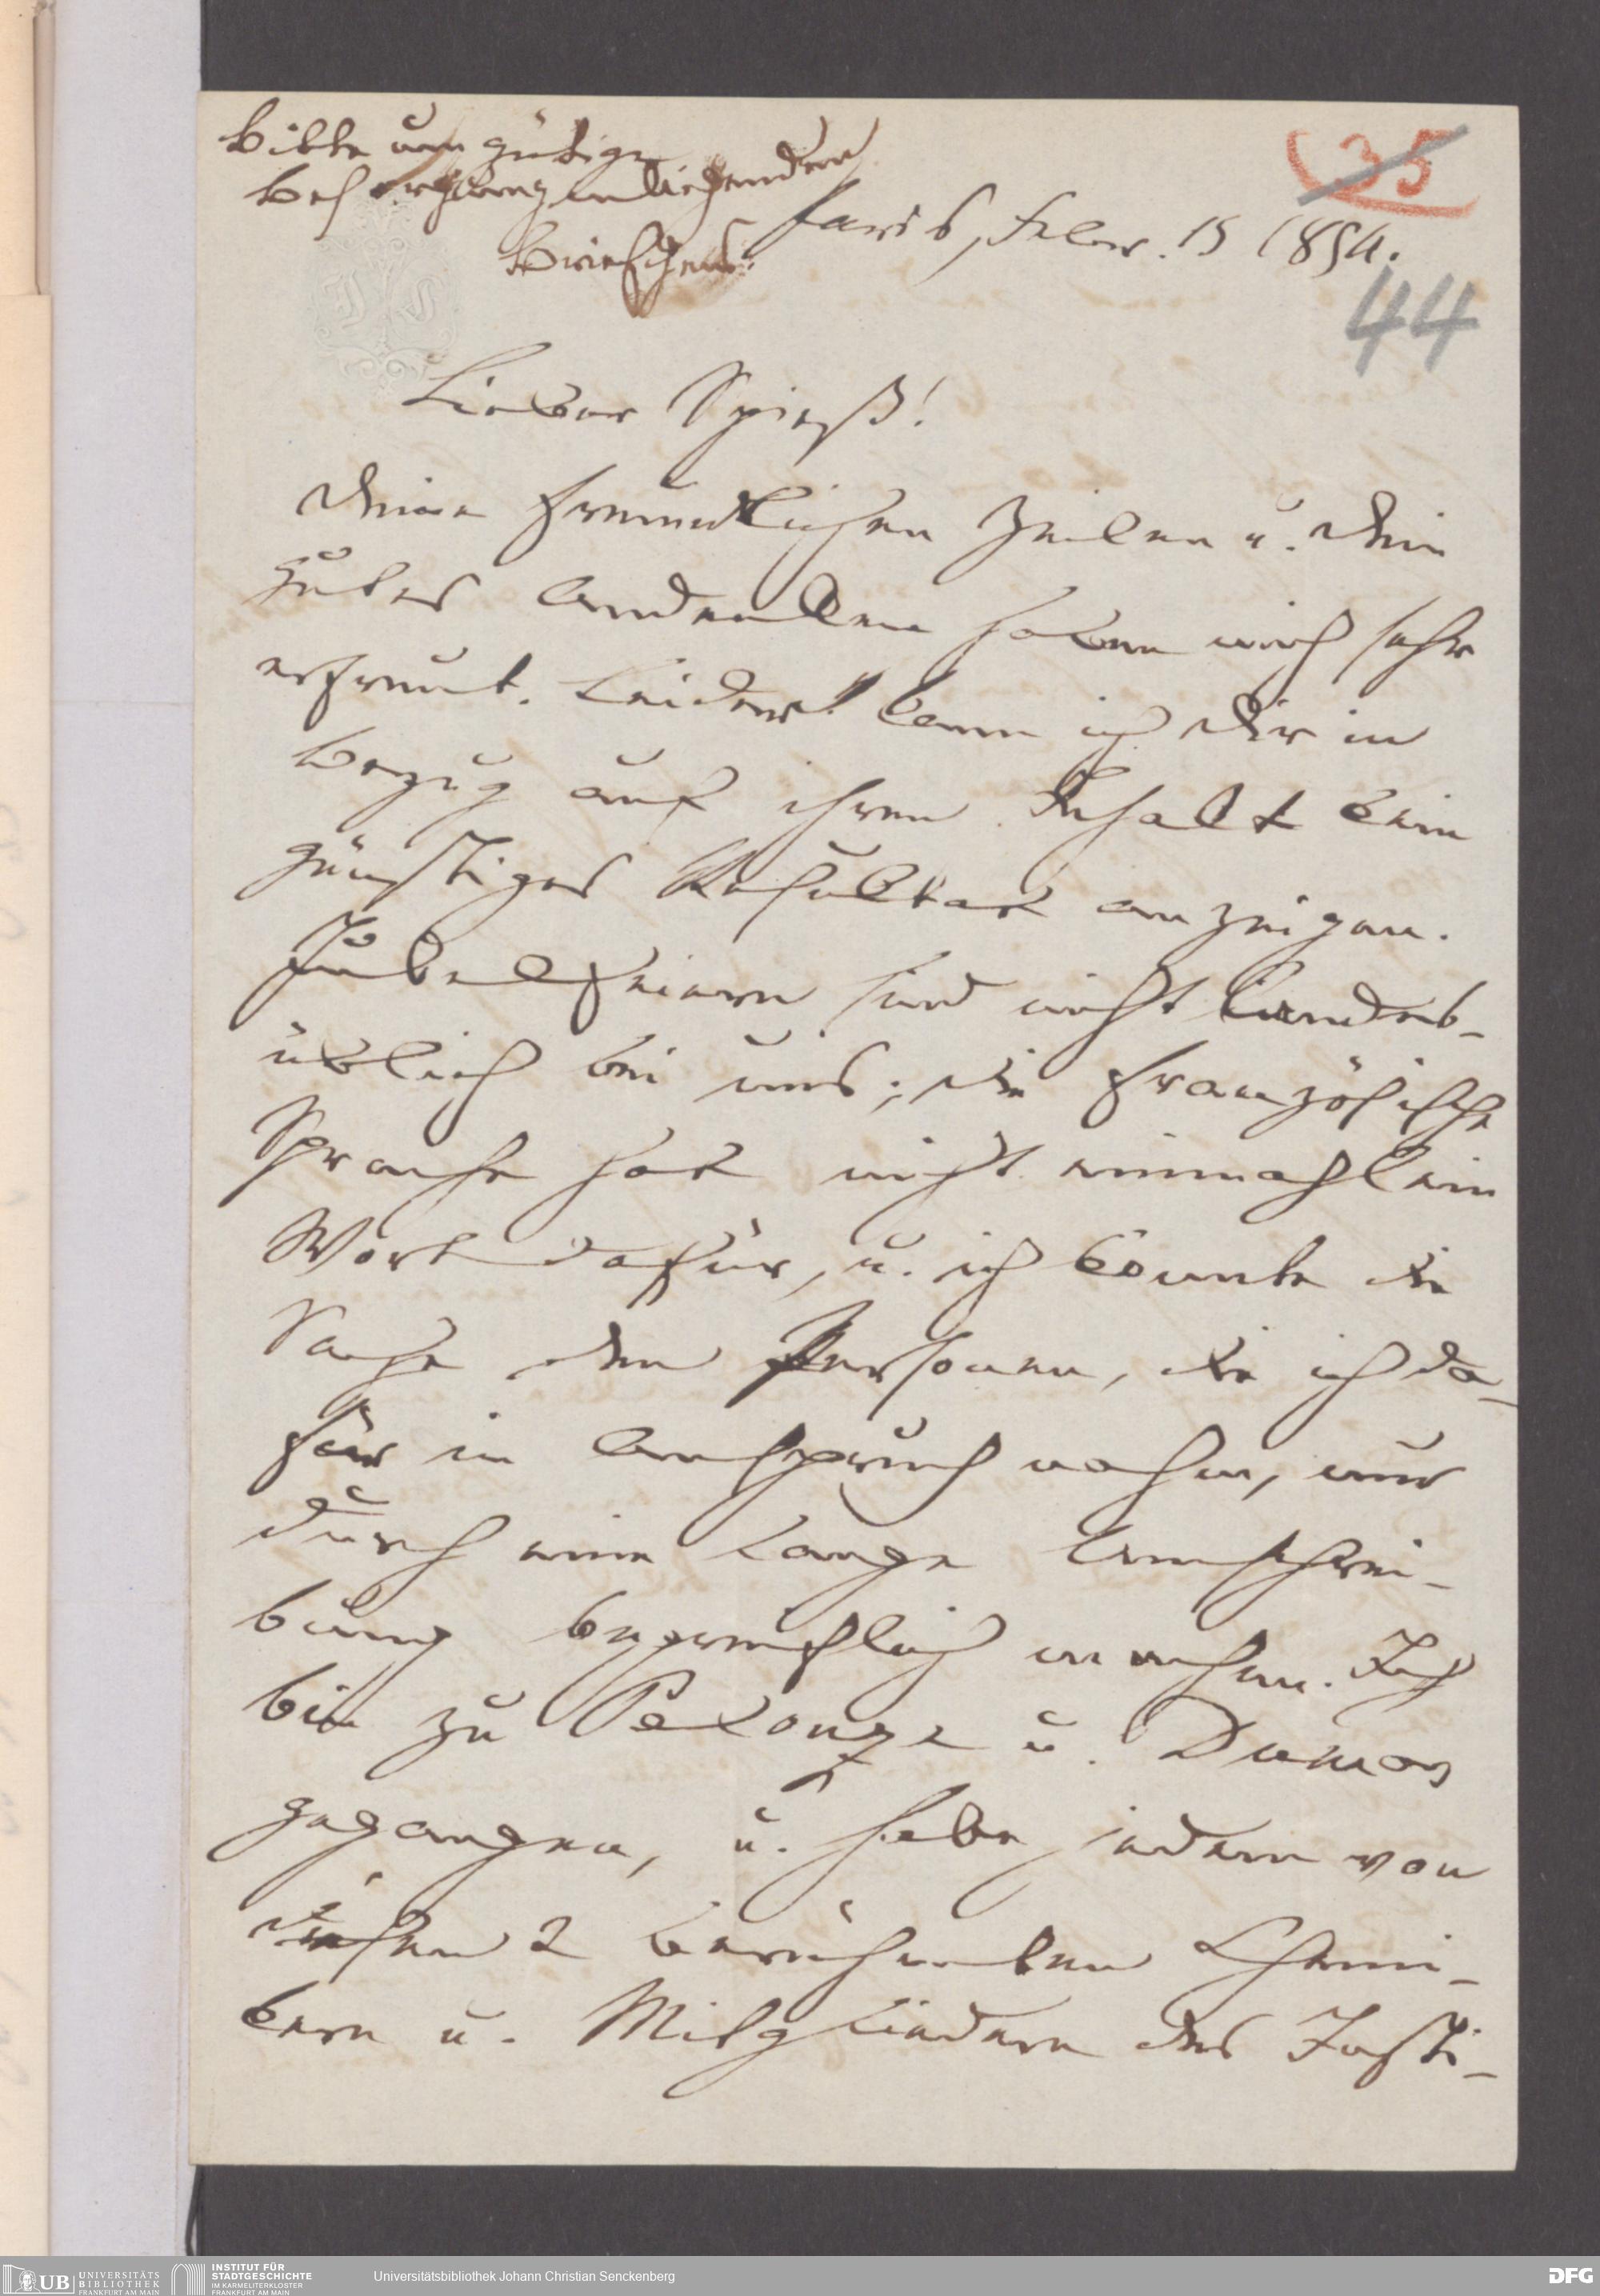 Bitte um gütige
Besorgung inliegenden
Briefchens.
35
Paris, Febr. 15 1854.
44
Lieber Spieß!
Deine freundlichen Zeilen u. Dein
gutes Andenken haben mich sehr
erfreut. Leider! kann ich Dir in
Bezug auf ihren Inhalt kein
günstiges Resultat anzeigen.
Jubelfeiern sind nicht landes-
üblich bei uns; die französische
Sprache hat nicht einmahl ein
Wort dafür, u. ich konnte die
Sache den Personen, die ich da-
für in Anspruch nahm, nur
durch eine lange Umschrei-
bung begreiflich machen. Ich
bin zu Pelouze u. Dumas
gegangen, u. habe jedem von
diesen 2 berühmten Chemi-
kern u. Mitgliedern des Insti-
UB UNIVERSITÄTS
BIBLIOTHEK
FRANKFURT AM MAIN
INSTITUT FÜR
STADTGESCHICHTE
IM KARMELITERKLOSTER
FRANKFURT AM MAIN
Universitätsbibliothek Johann Christian Senckenberg
DFG